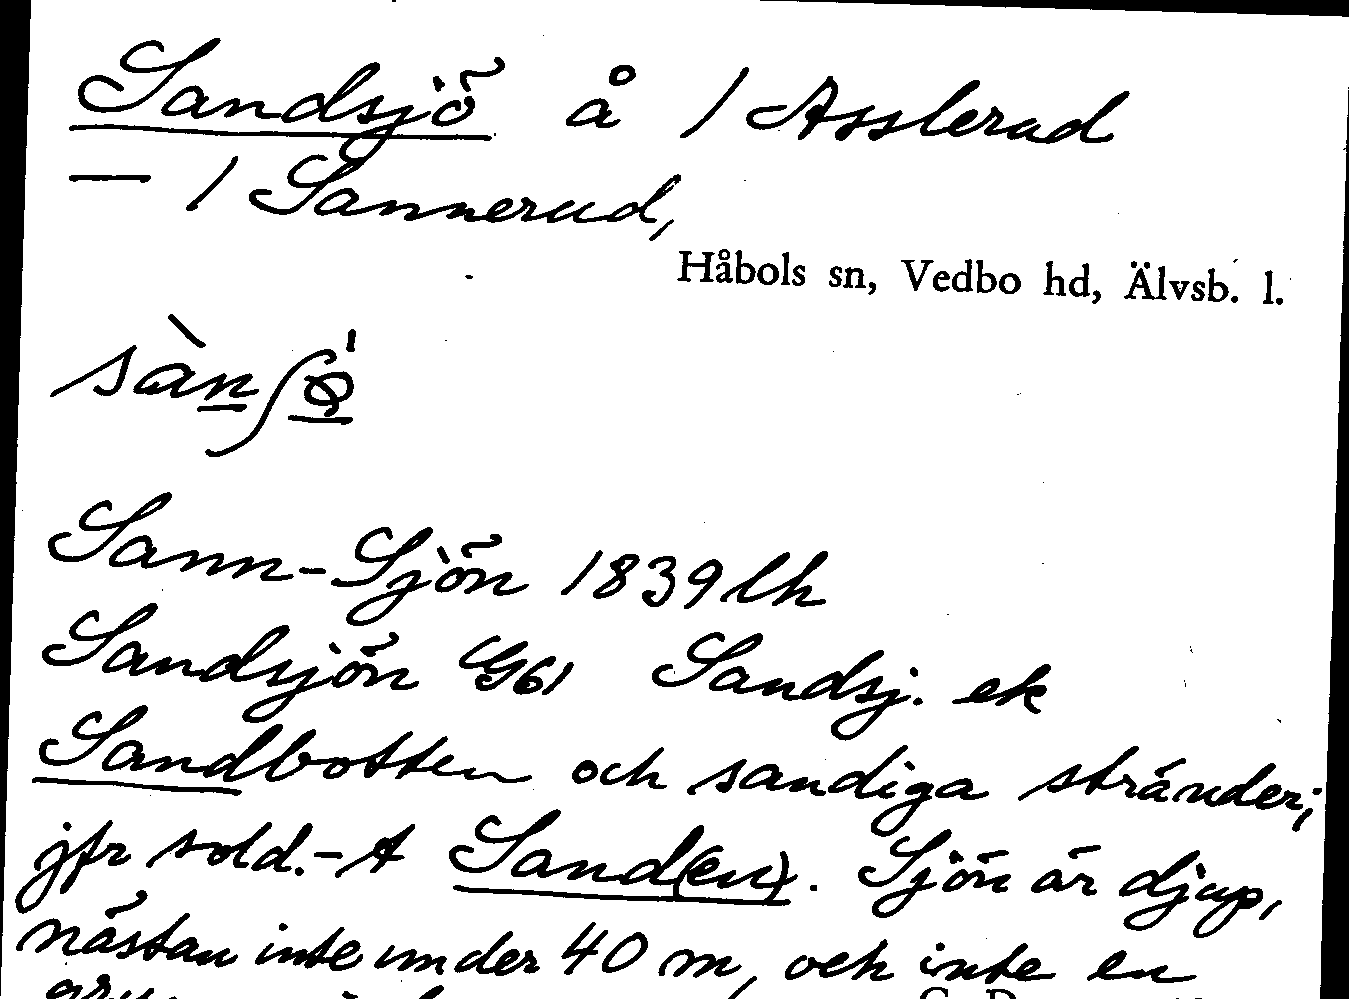 Sandsjö å / Asslerud
— / Sannerud,
Håbols sn, Vedbo hd, Älvsb. l.
sànʃø̀
Sann-Sjön 1839 lh
Sandsjön G61 Sandsj. ek
Sandbotten och sandiga stränder;
jfr sold.-t Sand(en). Sjön är djup,
nästan inte under 40 m, och inte en